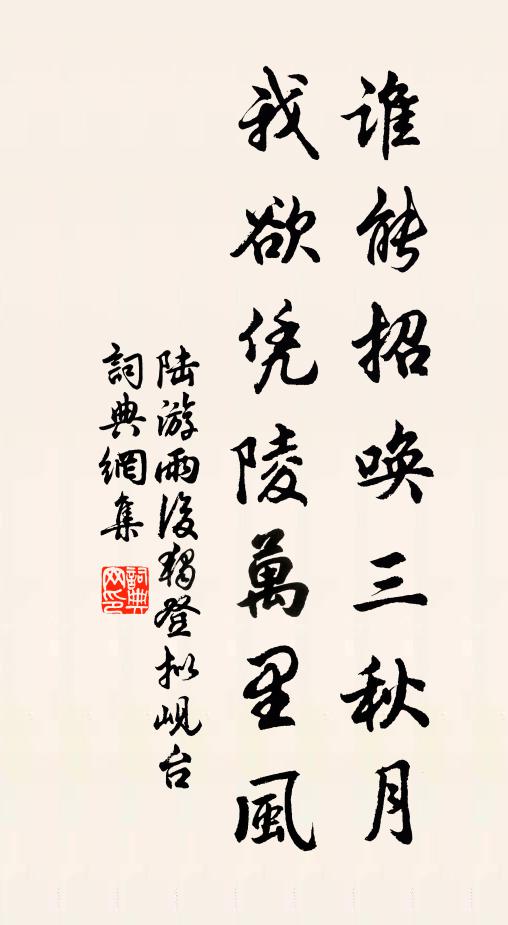 谁能招唤三秋月
我欲凭陵萬里風
陆游雨後獨登拟岘台
詞典網集
詞典
网印